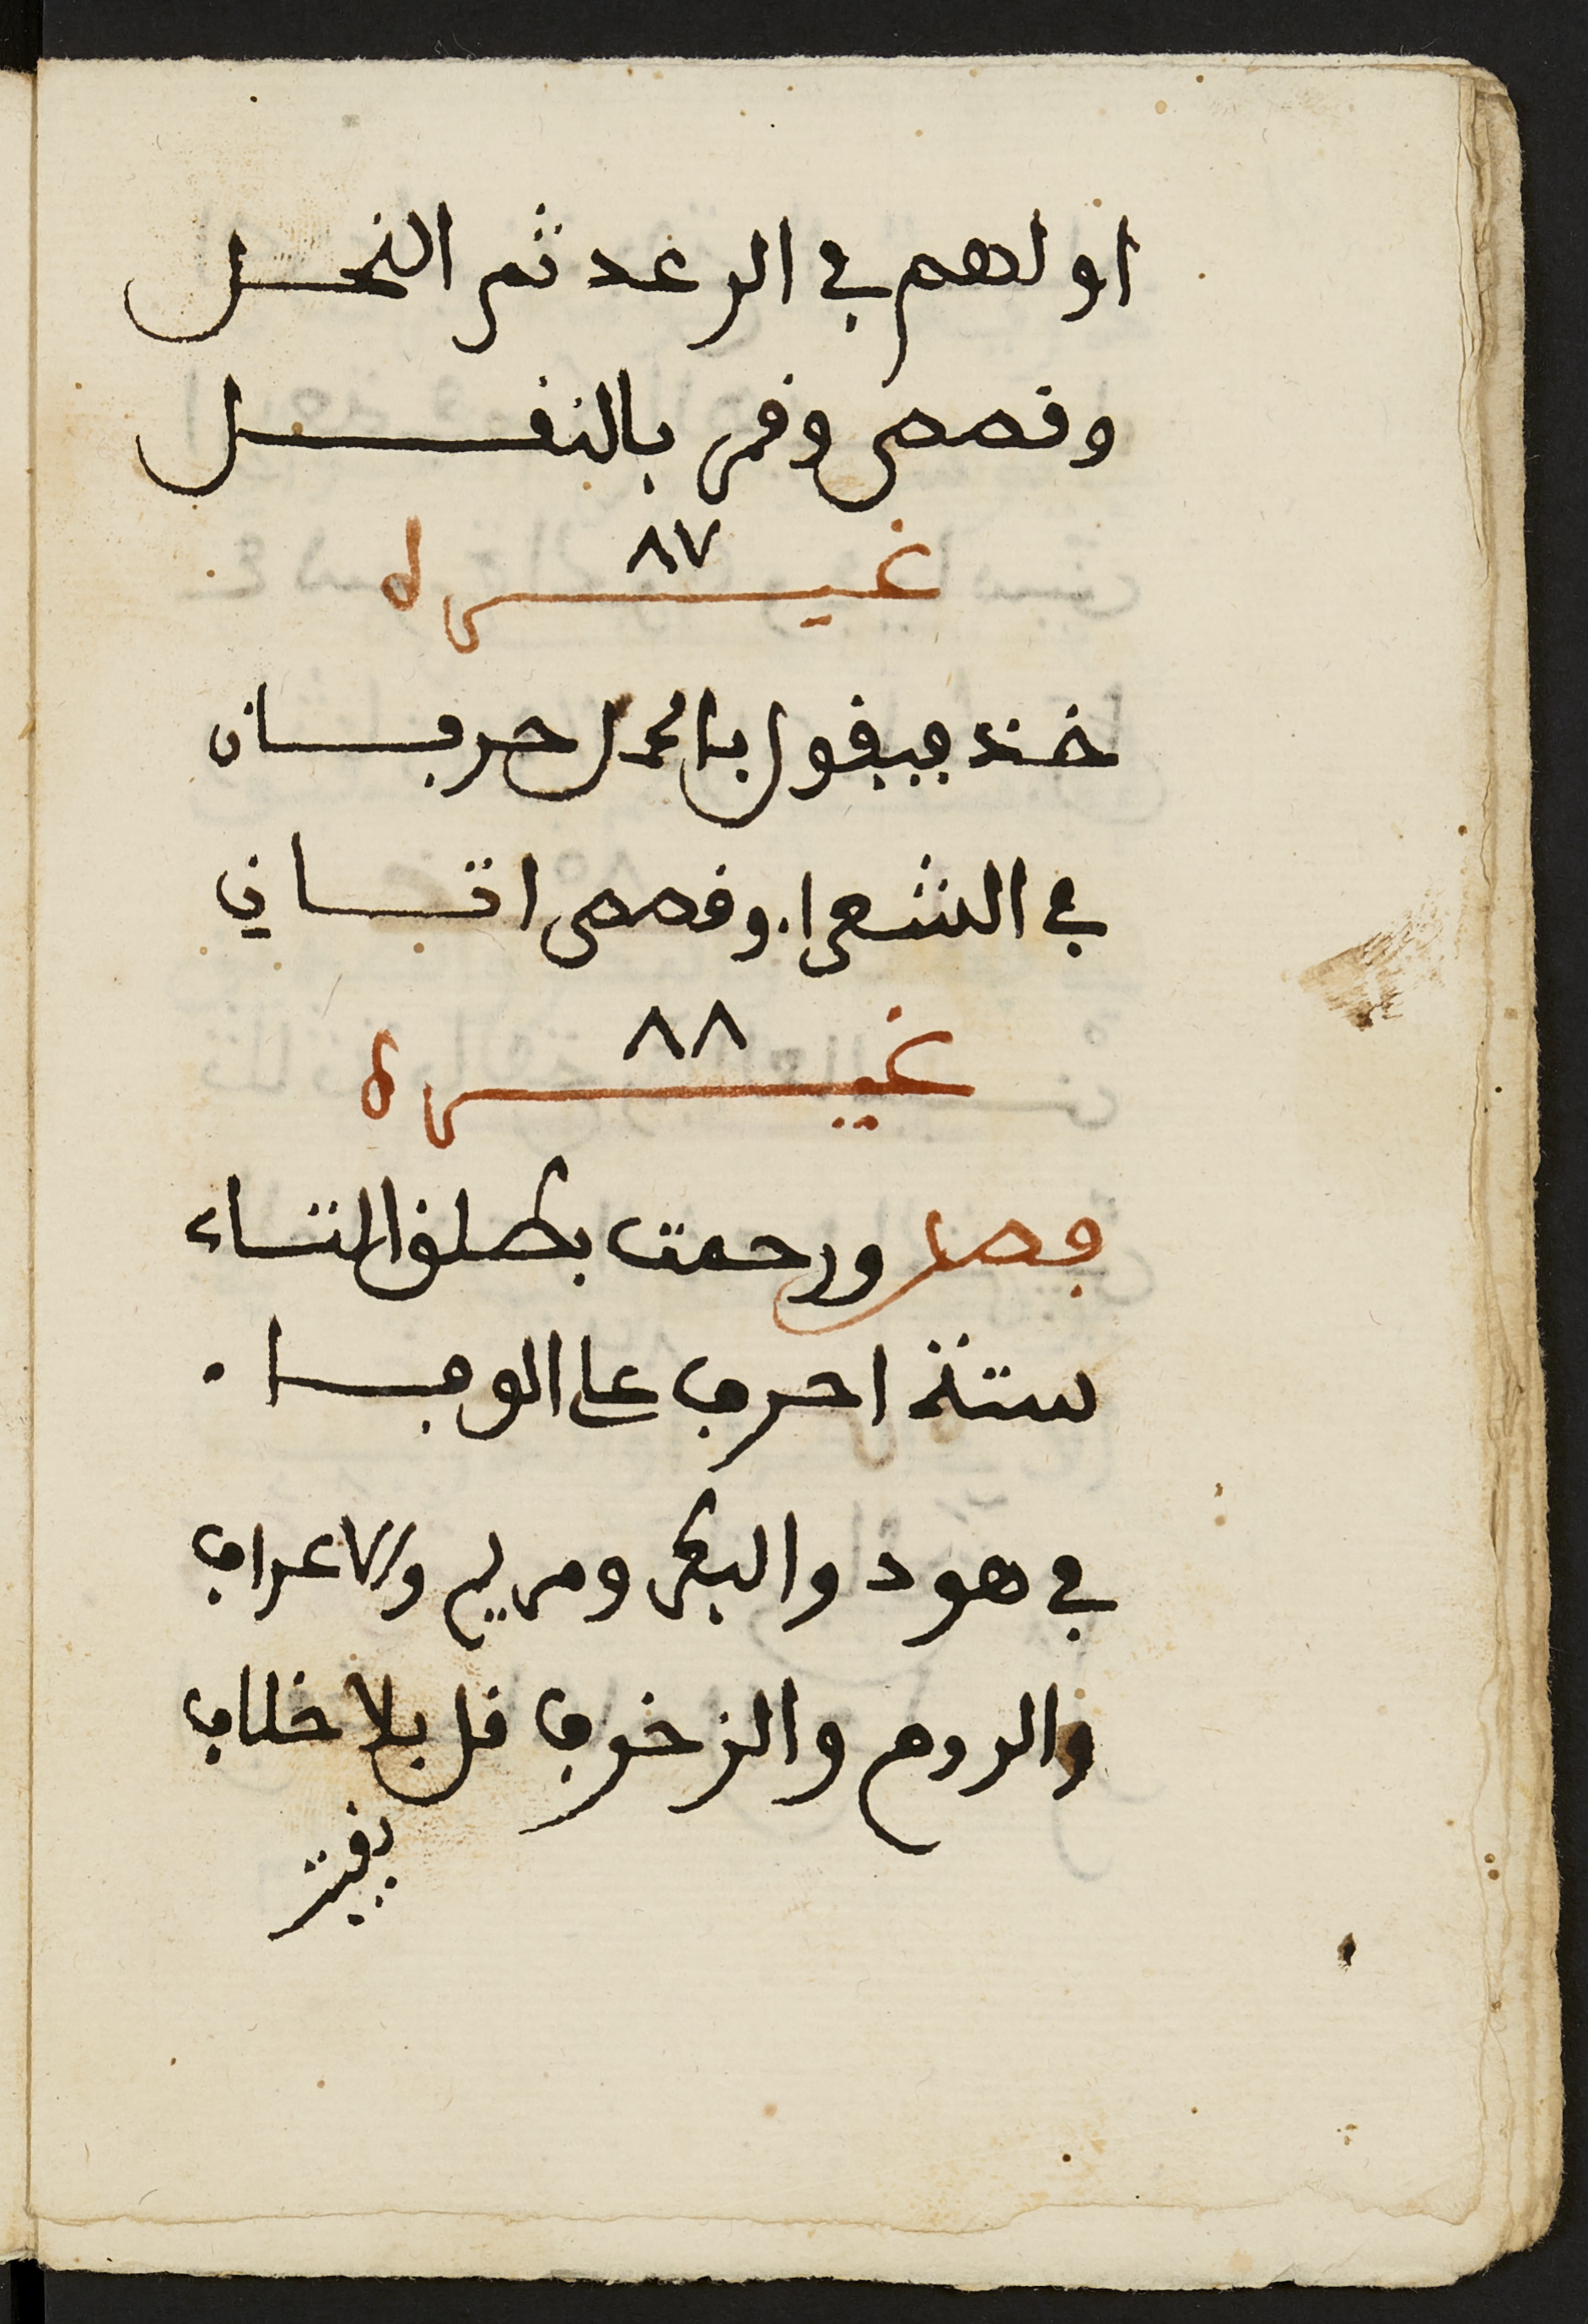 اولهم في الرعد ثم النحل
وقصص وقمر بالنقل
٨٧
غيره
خذ يقول بالمحل حرفان
في الشعراء وقصص اتاني
٨٨
غيره
فصل ورحمت بطلق التاء
ستة احرف على الوفاء
في هود والبكر ومريم والاعراف
والروم والزخرف قل بلا خلاف